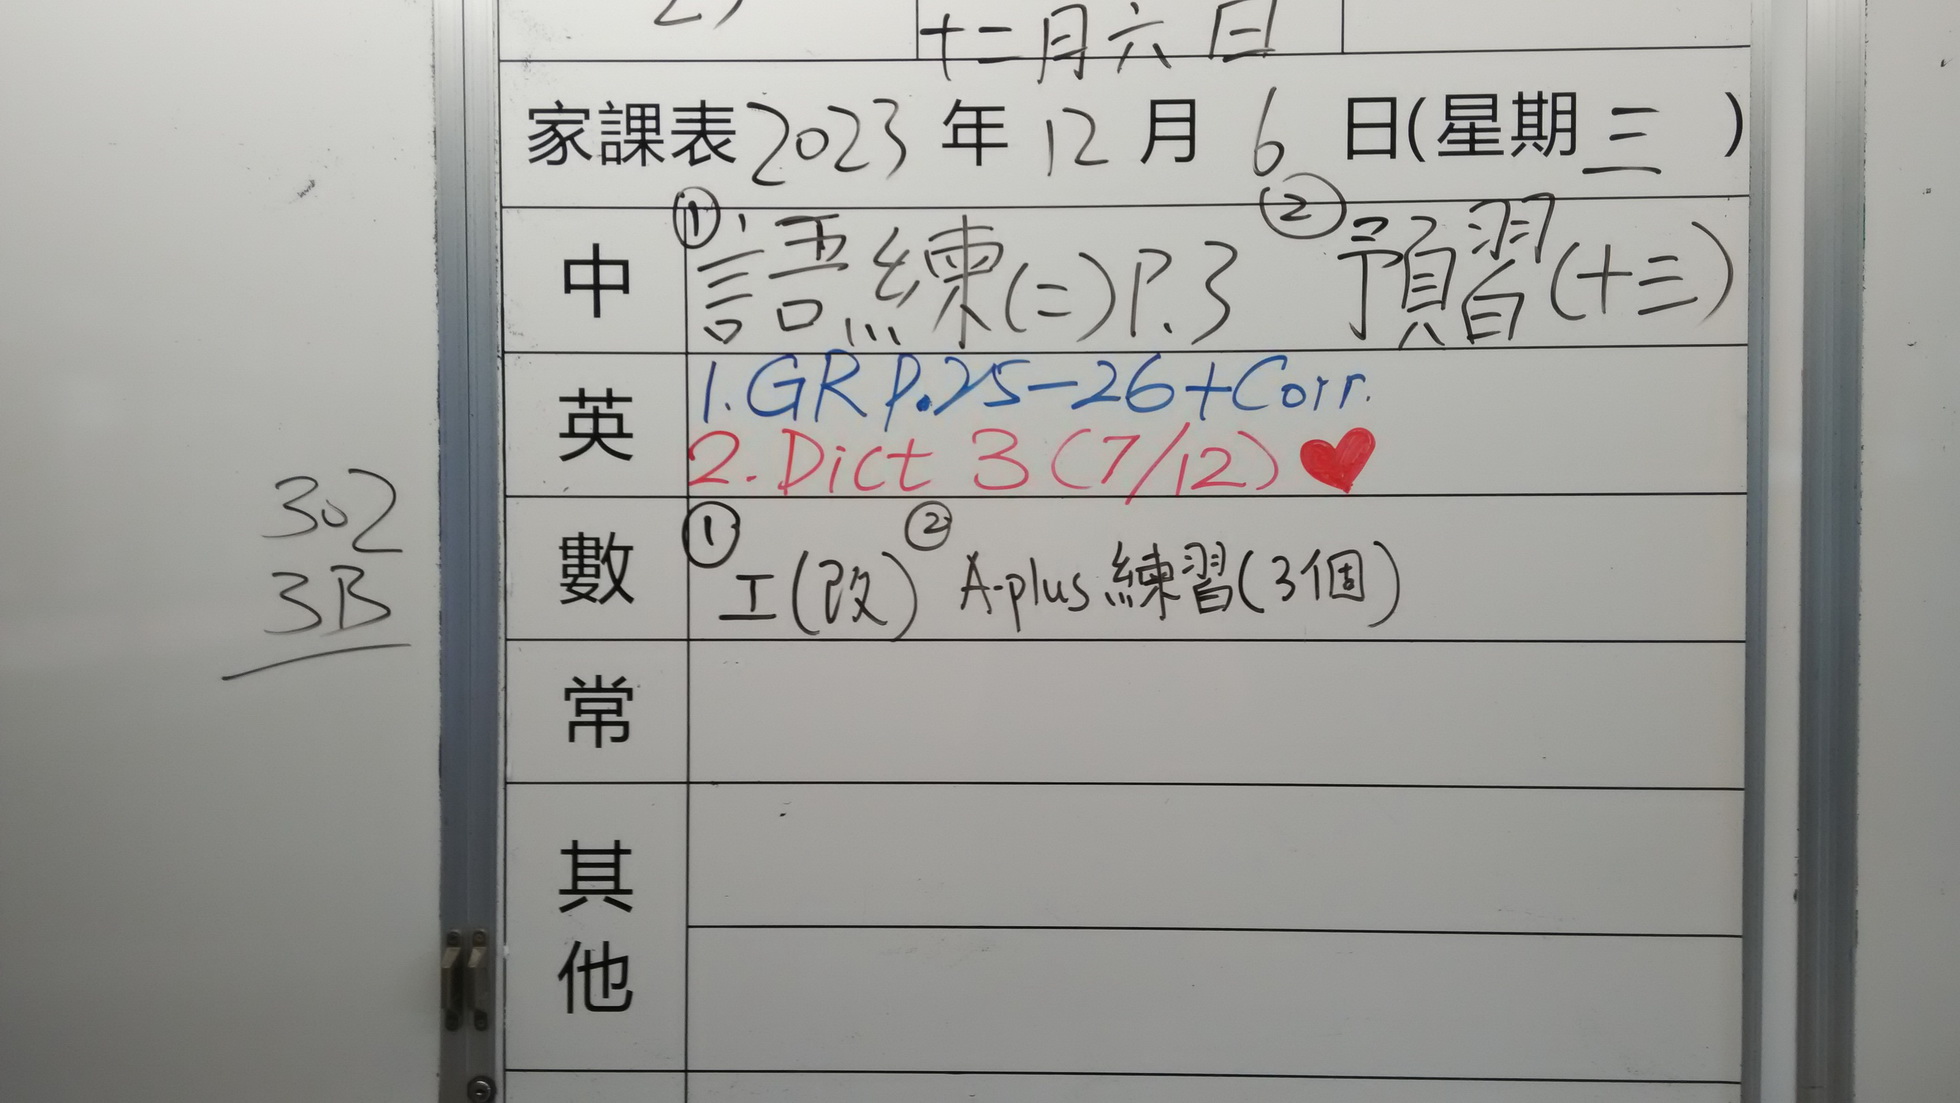 十二月六日
家課表 2023 年 12 月 6 日(星期三)
中 ① 語練(二)P.3 ② 預習(十三)
英 1. GR P.25-26+Corr.
2. Dict 3 (7/12) ♥
數 ① 工(改) ② A-plus 練習(3個)
常
其他
302
3B